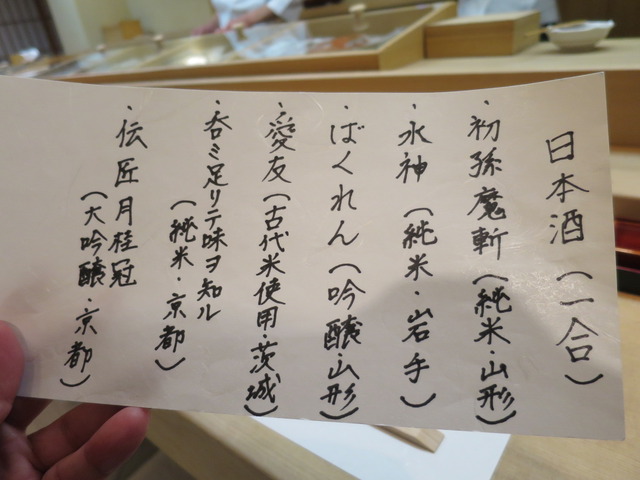 日本酒（一合）
・初孫魔斬（純米・山形）
・水神（純米・岩手）
・ばくれん（吟醸・山形）
・愛友（古代米使用茨城）
・呑ミ足リテ味ヲ知ル
（純米・京都）
・伝匠月桂冠
（大吟醸・京都）